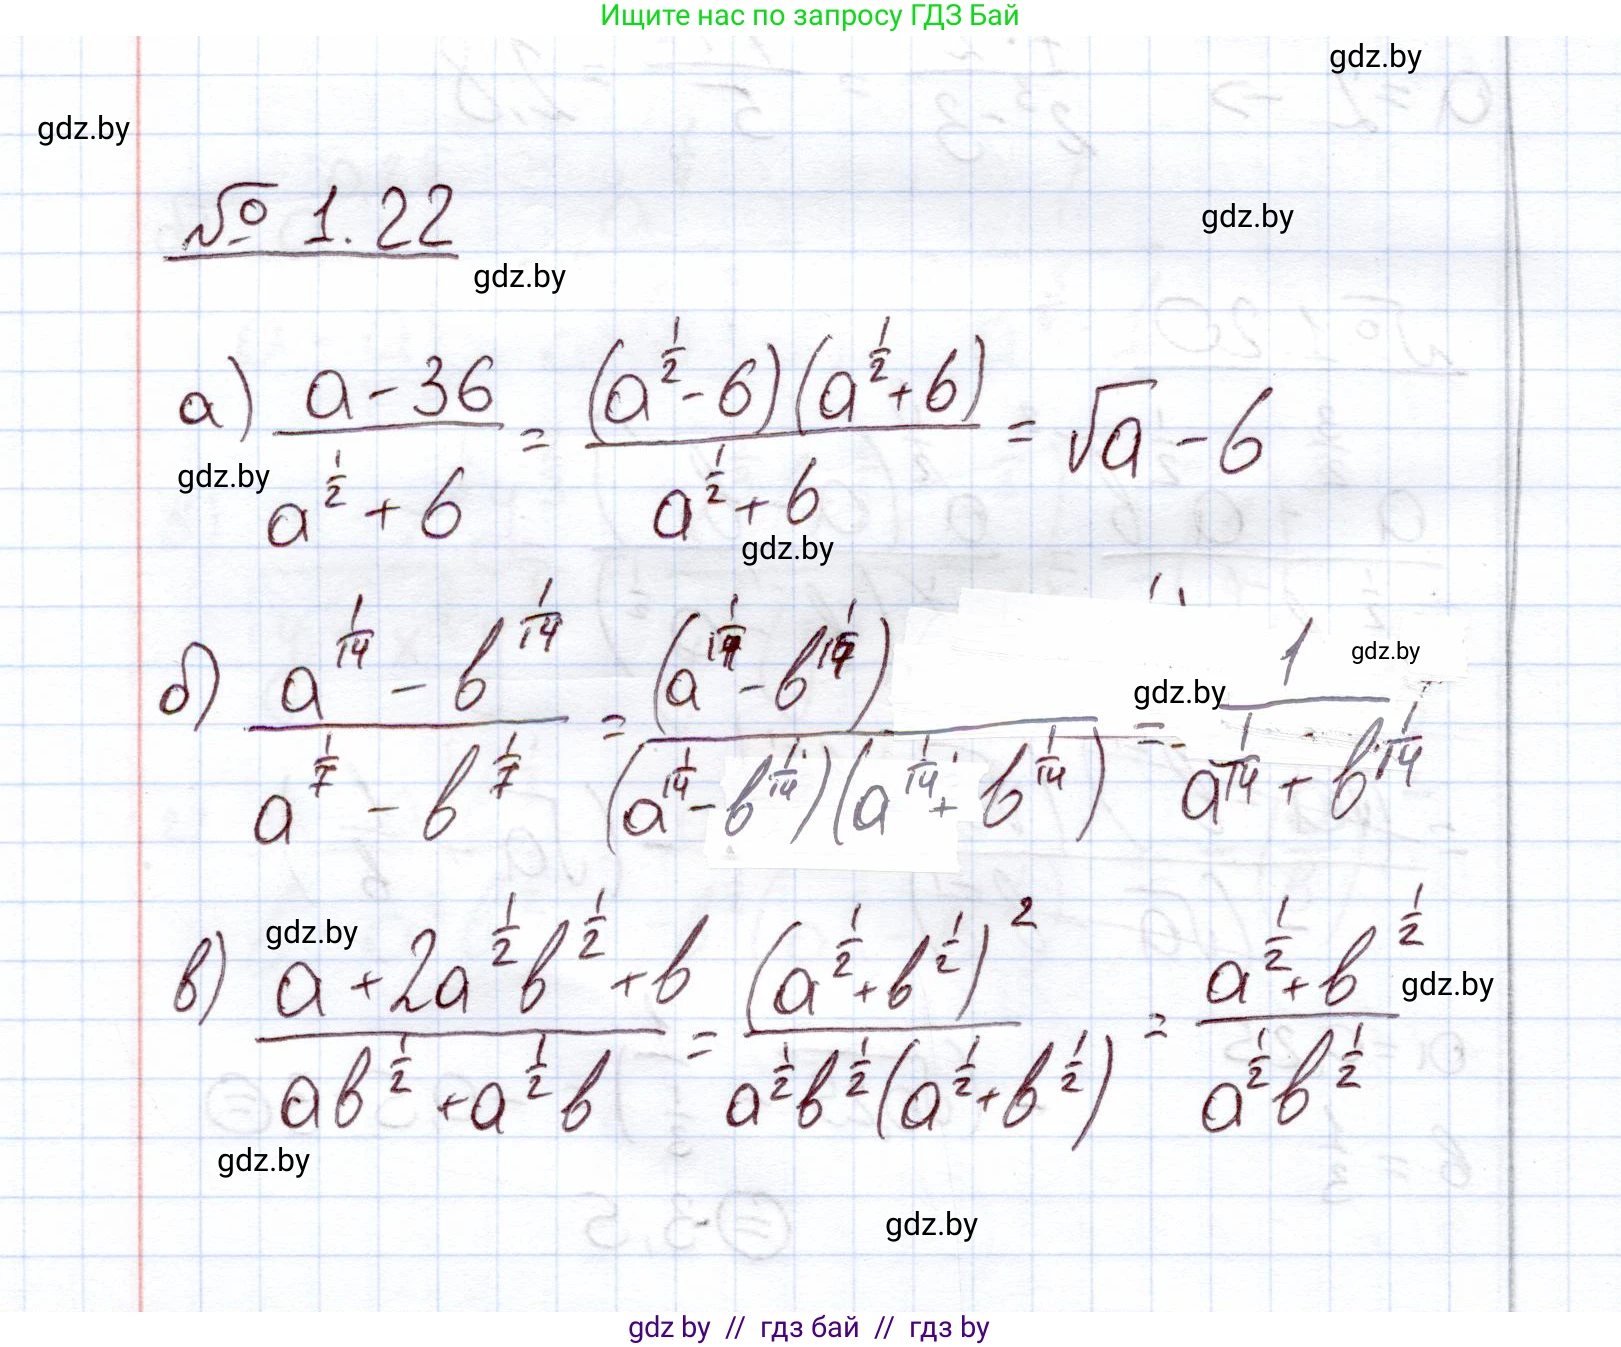 Ищите нас по запросу ГДЗ Бай
gdz.by
gdz.by
№ 1.22
gdz.by
gdz.by
а) (a - 36)/(a^(1/2) + 6) = ((a^(1/2) - 6)(a^(1/2) + 6))/(a^(1/2) + 6) = √a - 6
gdz.by
gdz.by
б) (a^(1/14) - b^(1/14))/(a^(1/7) - b^(1/7)) = (a^(1/14) - b^(1/14))/((a^(1/14) - b^(1/14))(a^(1/14) + b^(1/14))) = 1/(a^(1/14) + b^(1/14))
gdz.by
gdz.by
gdz.by
в) (a + 2a^(1/2)b^(1/2) + b)/(ab^(1/2) + a^(1/2)b) = (a^(1/2) + b^(1/2))^2/(a^(1/2)b^(1/2)(a^(1/2) + b^(1/2))) = (a^(1/2) + b^(1/2))/(a^(1/2)b^(1/2))
gdz.by
gdz.by
gdz.by
gdz by // гдз бай // гдз by